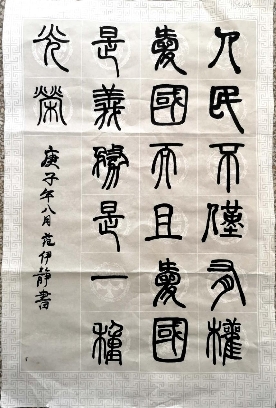 人民不僅有權
愛國而且愛國
是義務是一種
光榮
庚子年八月范伊靜書